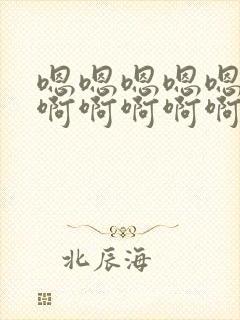 嗯嗯嗯嗯嗯
啊啊啊啊啊
北辰海